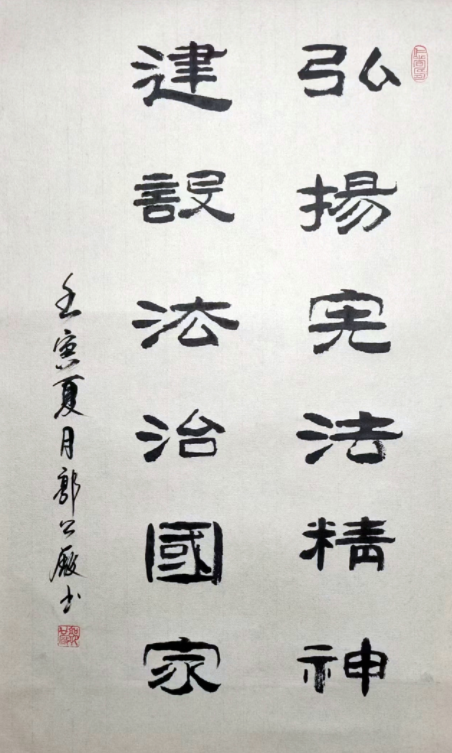 弘揚宪法精神
建設法治國家
壬寅夏月郭公厰书